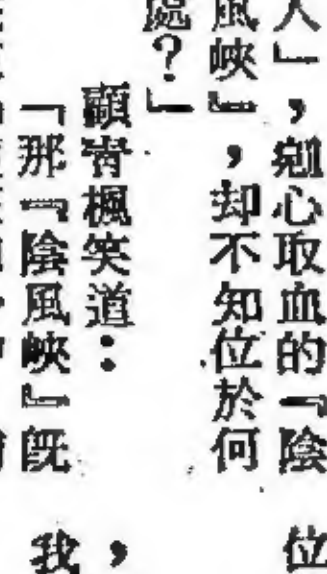 人」，剜心取血的『陰
風峽』，却不知位於何
處？」
顓宵楓笑道：
「那『陰風峽』旣
位
，
我